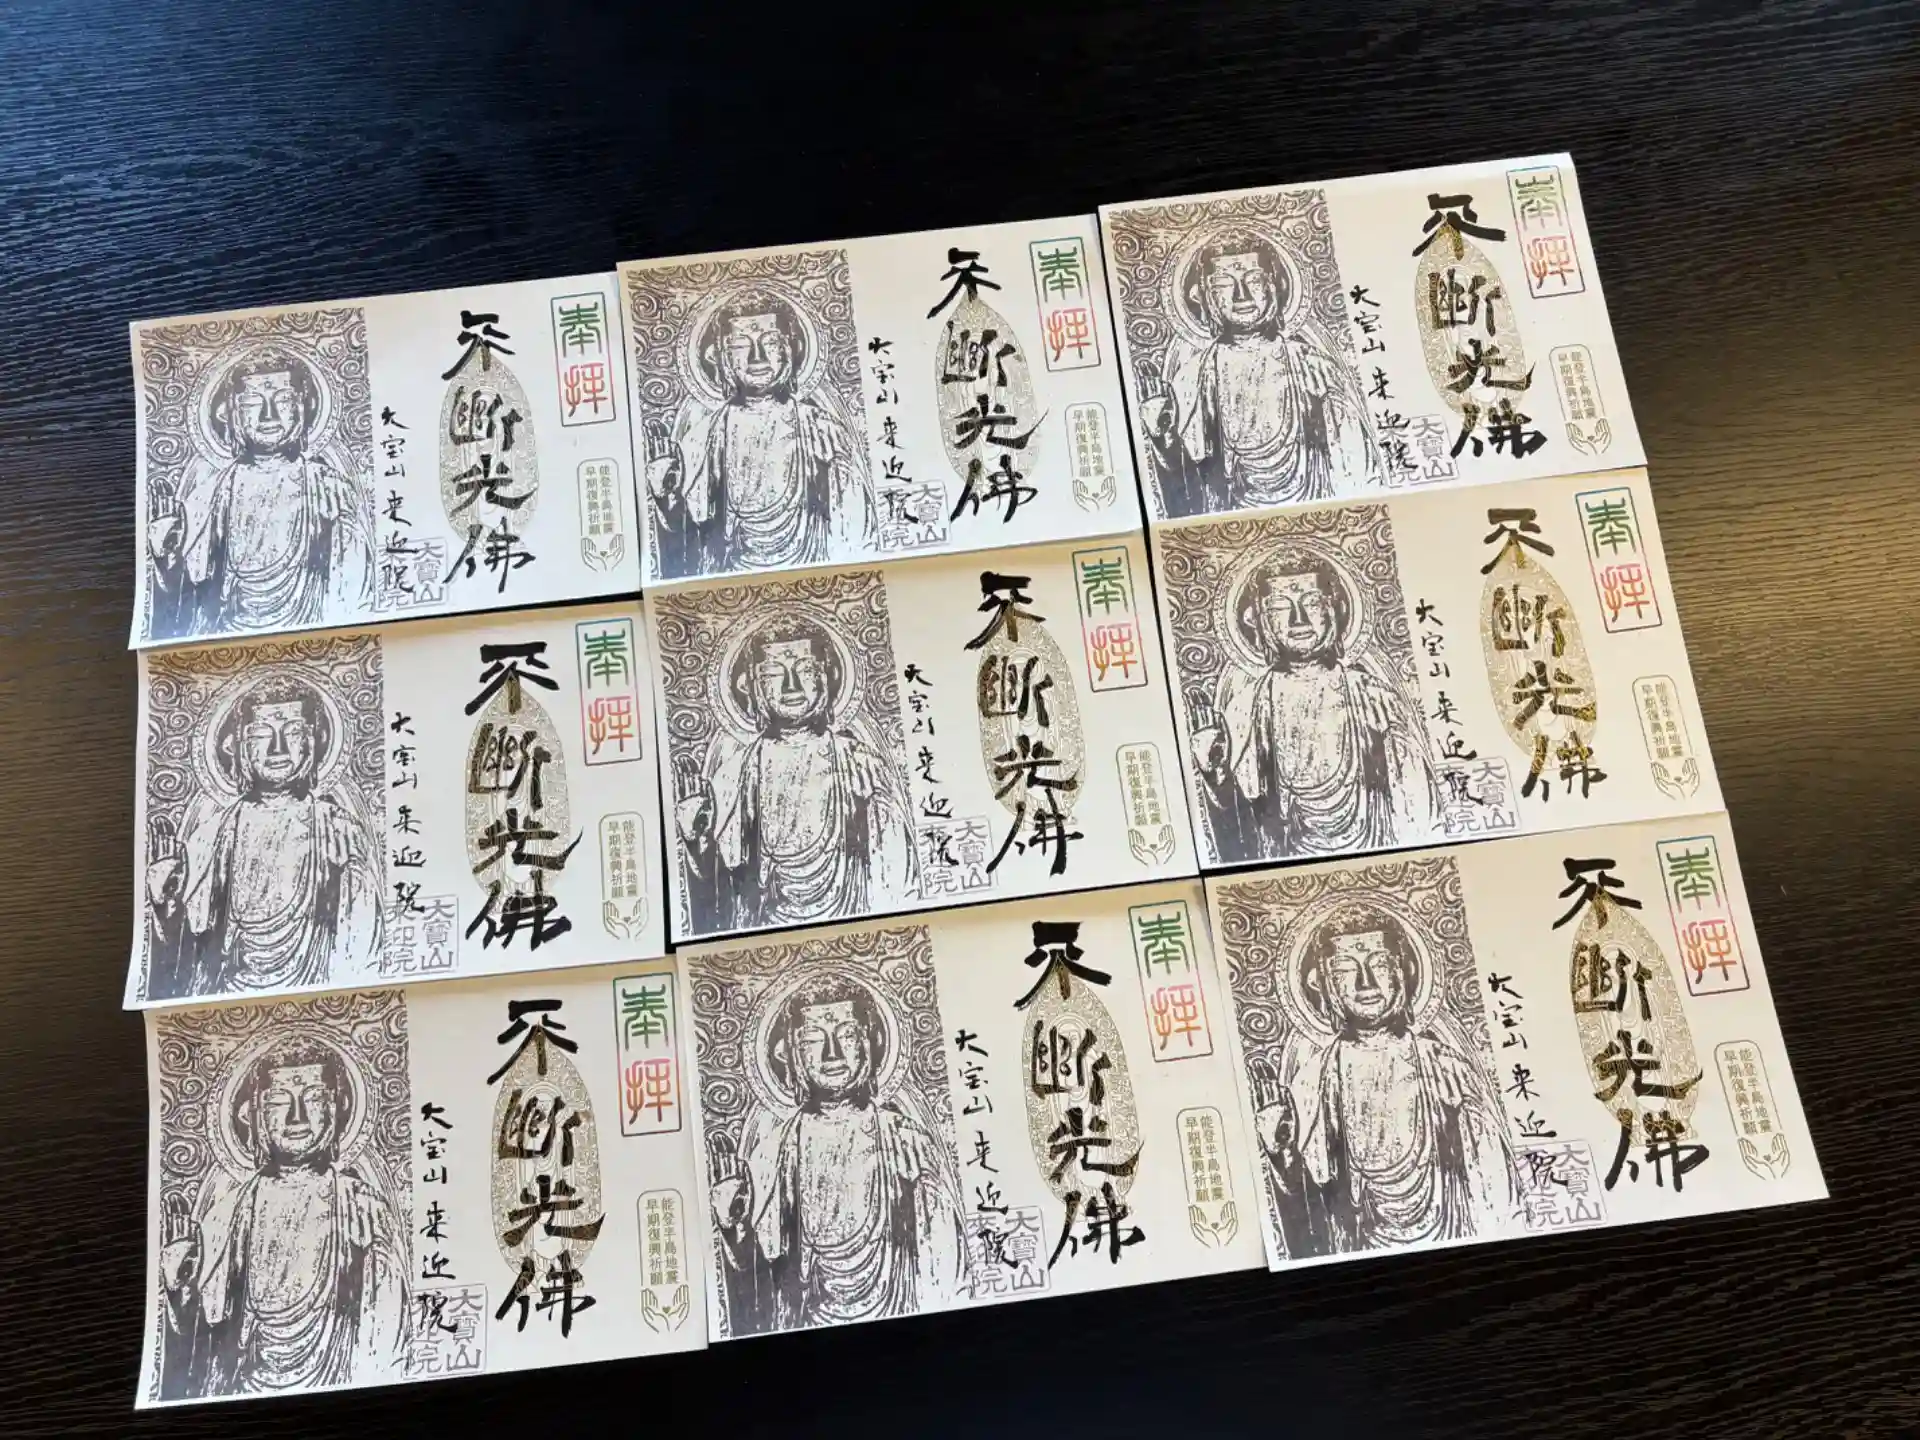 奉拝
不断光佛
能登半島地震
早期復興祈願
大宝山来迎院
大寶山
来迎院
奉拝
不断光佛
能登半島地震
早期復興祈願
大宝山来迎院
大寶山
来迎院
奉拝
不断光佛
能登半島地震
早期復興祈願
大宝山来迎院
大寶山
来迎院
奉拝
不断光佛
能登半島地震
早期復興祈願
大宝山来迎院
大寶山
来迎院
奉拝
不断光佛
能登半島地震
早期復興祈願
大宝山来迎院
大寶山
来迎院
奉拝
不断光佛
能登半島地震
早期復興祈願
大宝山来迎院
大寶山
来迎院
奉拝
不断光佛
能登半島地震
早期復興祈願
大宝山来迎院
大寶山
来迎院
奉拝
不断光佛
能登半島地震
早期復興祈願
大宝山来迎院
大寶山
来迎院
奉拝
不断光佛
能登半島地震
早期復興祈願
大宝山来迎院
大寶山
来迎院